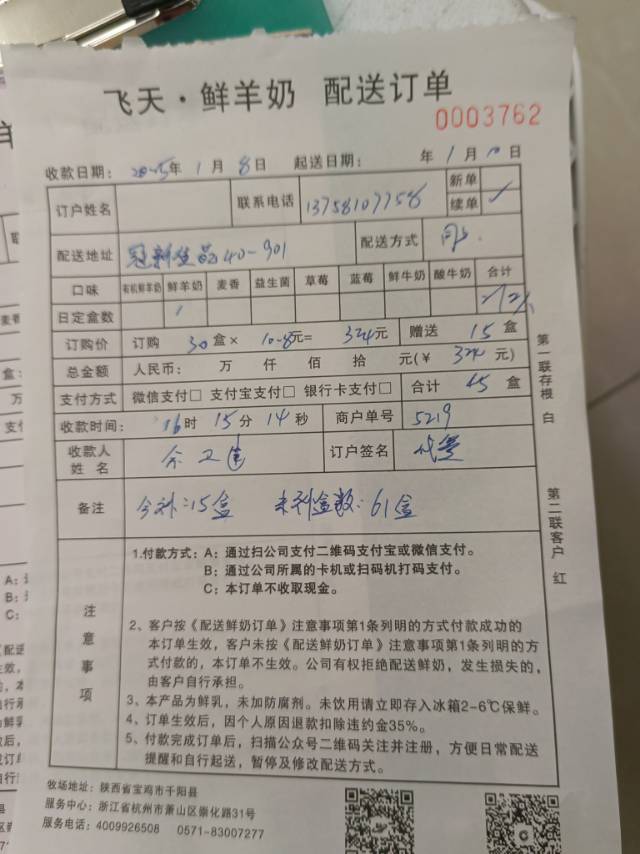 飞天·鲜羊奶 配送订单
0003762
收款日期: 2025年 1月 8日 起送日期: 年 1月 10日
订户姓名 联系电话 13758107758 新单
续单 ✓
配送地址 40-901 配送方式
口味 有机鲜羊奶 鲜羊奶 麦香 益生菌 草莓 蓝莓 鲜牛奶 酸牛奶 合计
日定盒数 1
订购价 订购 30 盒× 10.8元= 324元 赠送 15 盒
总金额 人民币: 万 仟 佰 拾 元(¥ 324 元)
支付方式 微信支付□ 支付宝支付□ 银行卡支付□ 合计 45 盒
收款时间: 16时 15分 14秒 商户单号 5219
收款人姓名 订户签名
备注 今补:15盒 未到盒数:61盒
第一联存根 白
第二联客户 红
注意事项
1.付款方式: A: 通过扫公司支付二维码支付宝或微信支付。
B: 通过公司所属的卡机或扫码机打码支付。
C: 本订单不收取现金。
2、客户按《配送鲜奶订单》注意事项第1条列明的方式付款成功的
本订单生效，客户未按《配送鲜奶订单》注意事项第1条列明的方
式付款的，本订单不生效。公司有权拒绝配送鲜奶，发生损失的，
由客户自行承担。
3、本产品为鲜乳，未加防腐剂。未饮用请立即存入冰箱2-6℃保鲜。
4、订单生效后，因个人原因退款扣除违约金35%。
5、付款完成订单后，扫描公众号二维码关注并注册，方便日常配送
提醒和自行起送，暂停及修改配送方式。
牧场地址: 陕西省宝鸡市千阳县
服务中心: 浙江省杭州市萧山区崇化路31号
服务电话: 4009926508 0571-83007277